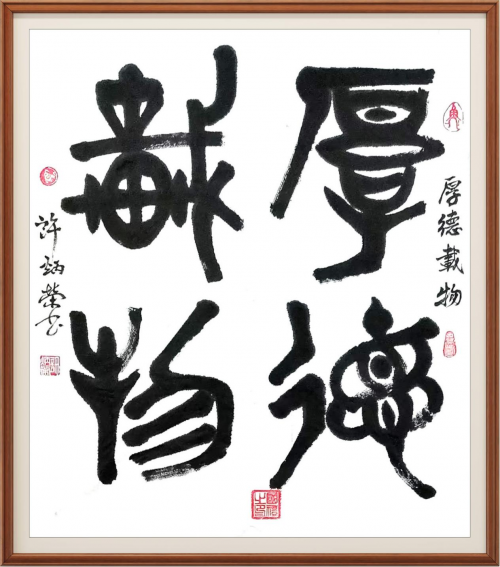 厚德
載物
厚德載物
許炳榮书